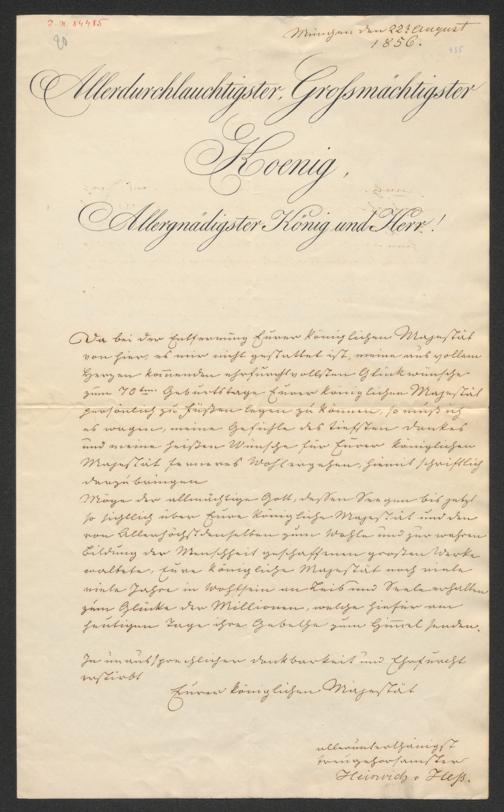 I. N. 84485
München den 22t August
1856.
Allerdurchlauchtigster, Grossmächtigster
Koenig,
Allergnädigster König und Herr!
Da bei der Entfernung Eurer Königlichen Majestät
von hier, es mir nicht gestattet ist, meine aus vollem
Herzen kom̅enden ehrfurchtvollsten Glückwünsche
zum 70ten Geburtstage Eurer königlichen Majestät
persönlich zu Füßen legen zu können, so muß ich
es wagen, meine Gefühle des tiefsten Dankes
und meine heißen Wünsche für Eurer königlichen
Majestät ferneres Wohlergehen, hiemit schriftlich
darzubringen
Möge der allmächtige Gott, dessen Seegen bis jetzt
so sichtlich über Eure königliche Majestät und den
von Allerhöchstdenselben zum Wohle und zur wahren
Bildung der Menschheit geschaffenen großen Werke
waltete, Eure königliche Majestät noch viele
viele Jahre in Wohlsein an Leib und Seele erhalten
zum Glücke der Millionen, welche hiefür am
heutigen Tage ihre Gebethe zum Him̅el senden.
In unaussprechlicher Dankbarkeit und Ehrfurcht
erstirbt
Eurer königlichen Majestät
allerunterthänigst
treugehorsamster
Heinrich v Heß.